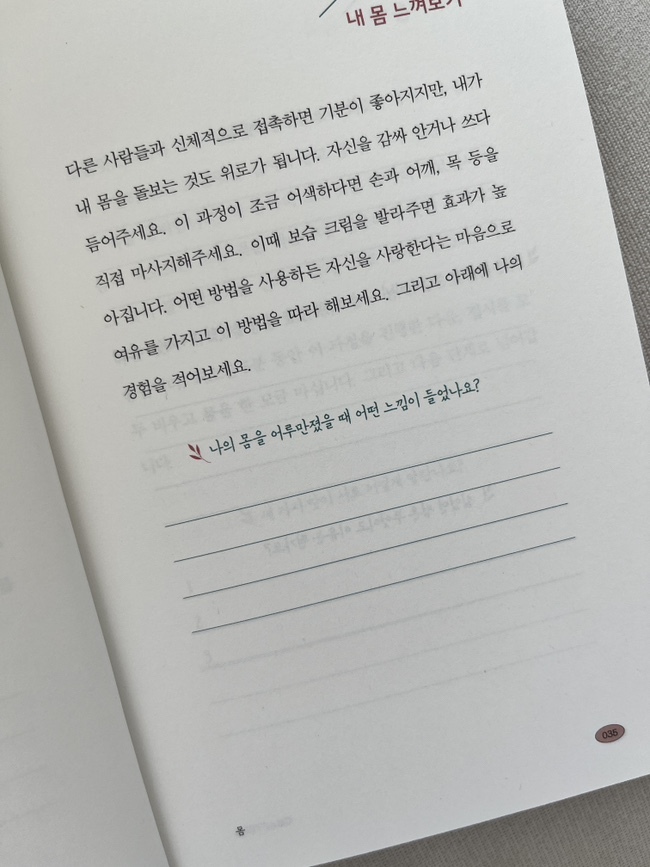 내 몸 느껴보기
다른 사람들과 신체적으로 접촉하면 기분이 좋아지지만, 내가
내 몸을 돌보는 것도 위로가 됩니다. 자신을 감싸 안거나 쓰다
듬어주세요. 이 과정이 조금 어색하다면 손과 어깨, 목 등을
직접 마사지해주세요. 이때 보습 크림을 발라주면 효과가 높
아집니다. 어떤 방법을 사용하든 자신을 사랑한다는 마음으로
여유를 가지고 이 방법을 따라 해보세요. 그리고 아래에 나의
경험을 적어보세요.
나의 몸을 어루만졌을 때 어떤 느낌이 들었나요?
035
몸